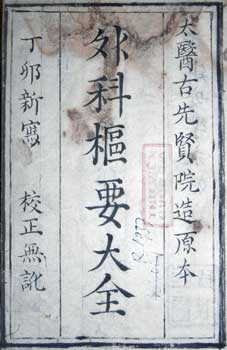 太醫古先賢院造原本
外科樞要大全
丁卯新寫 校正無訛